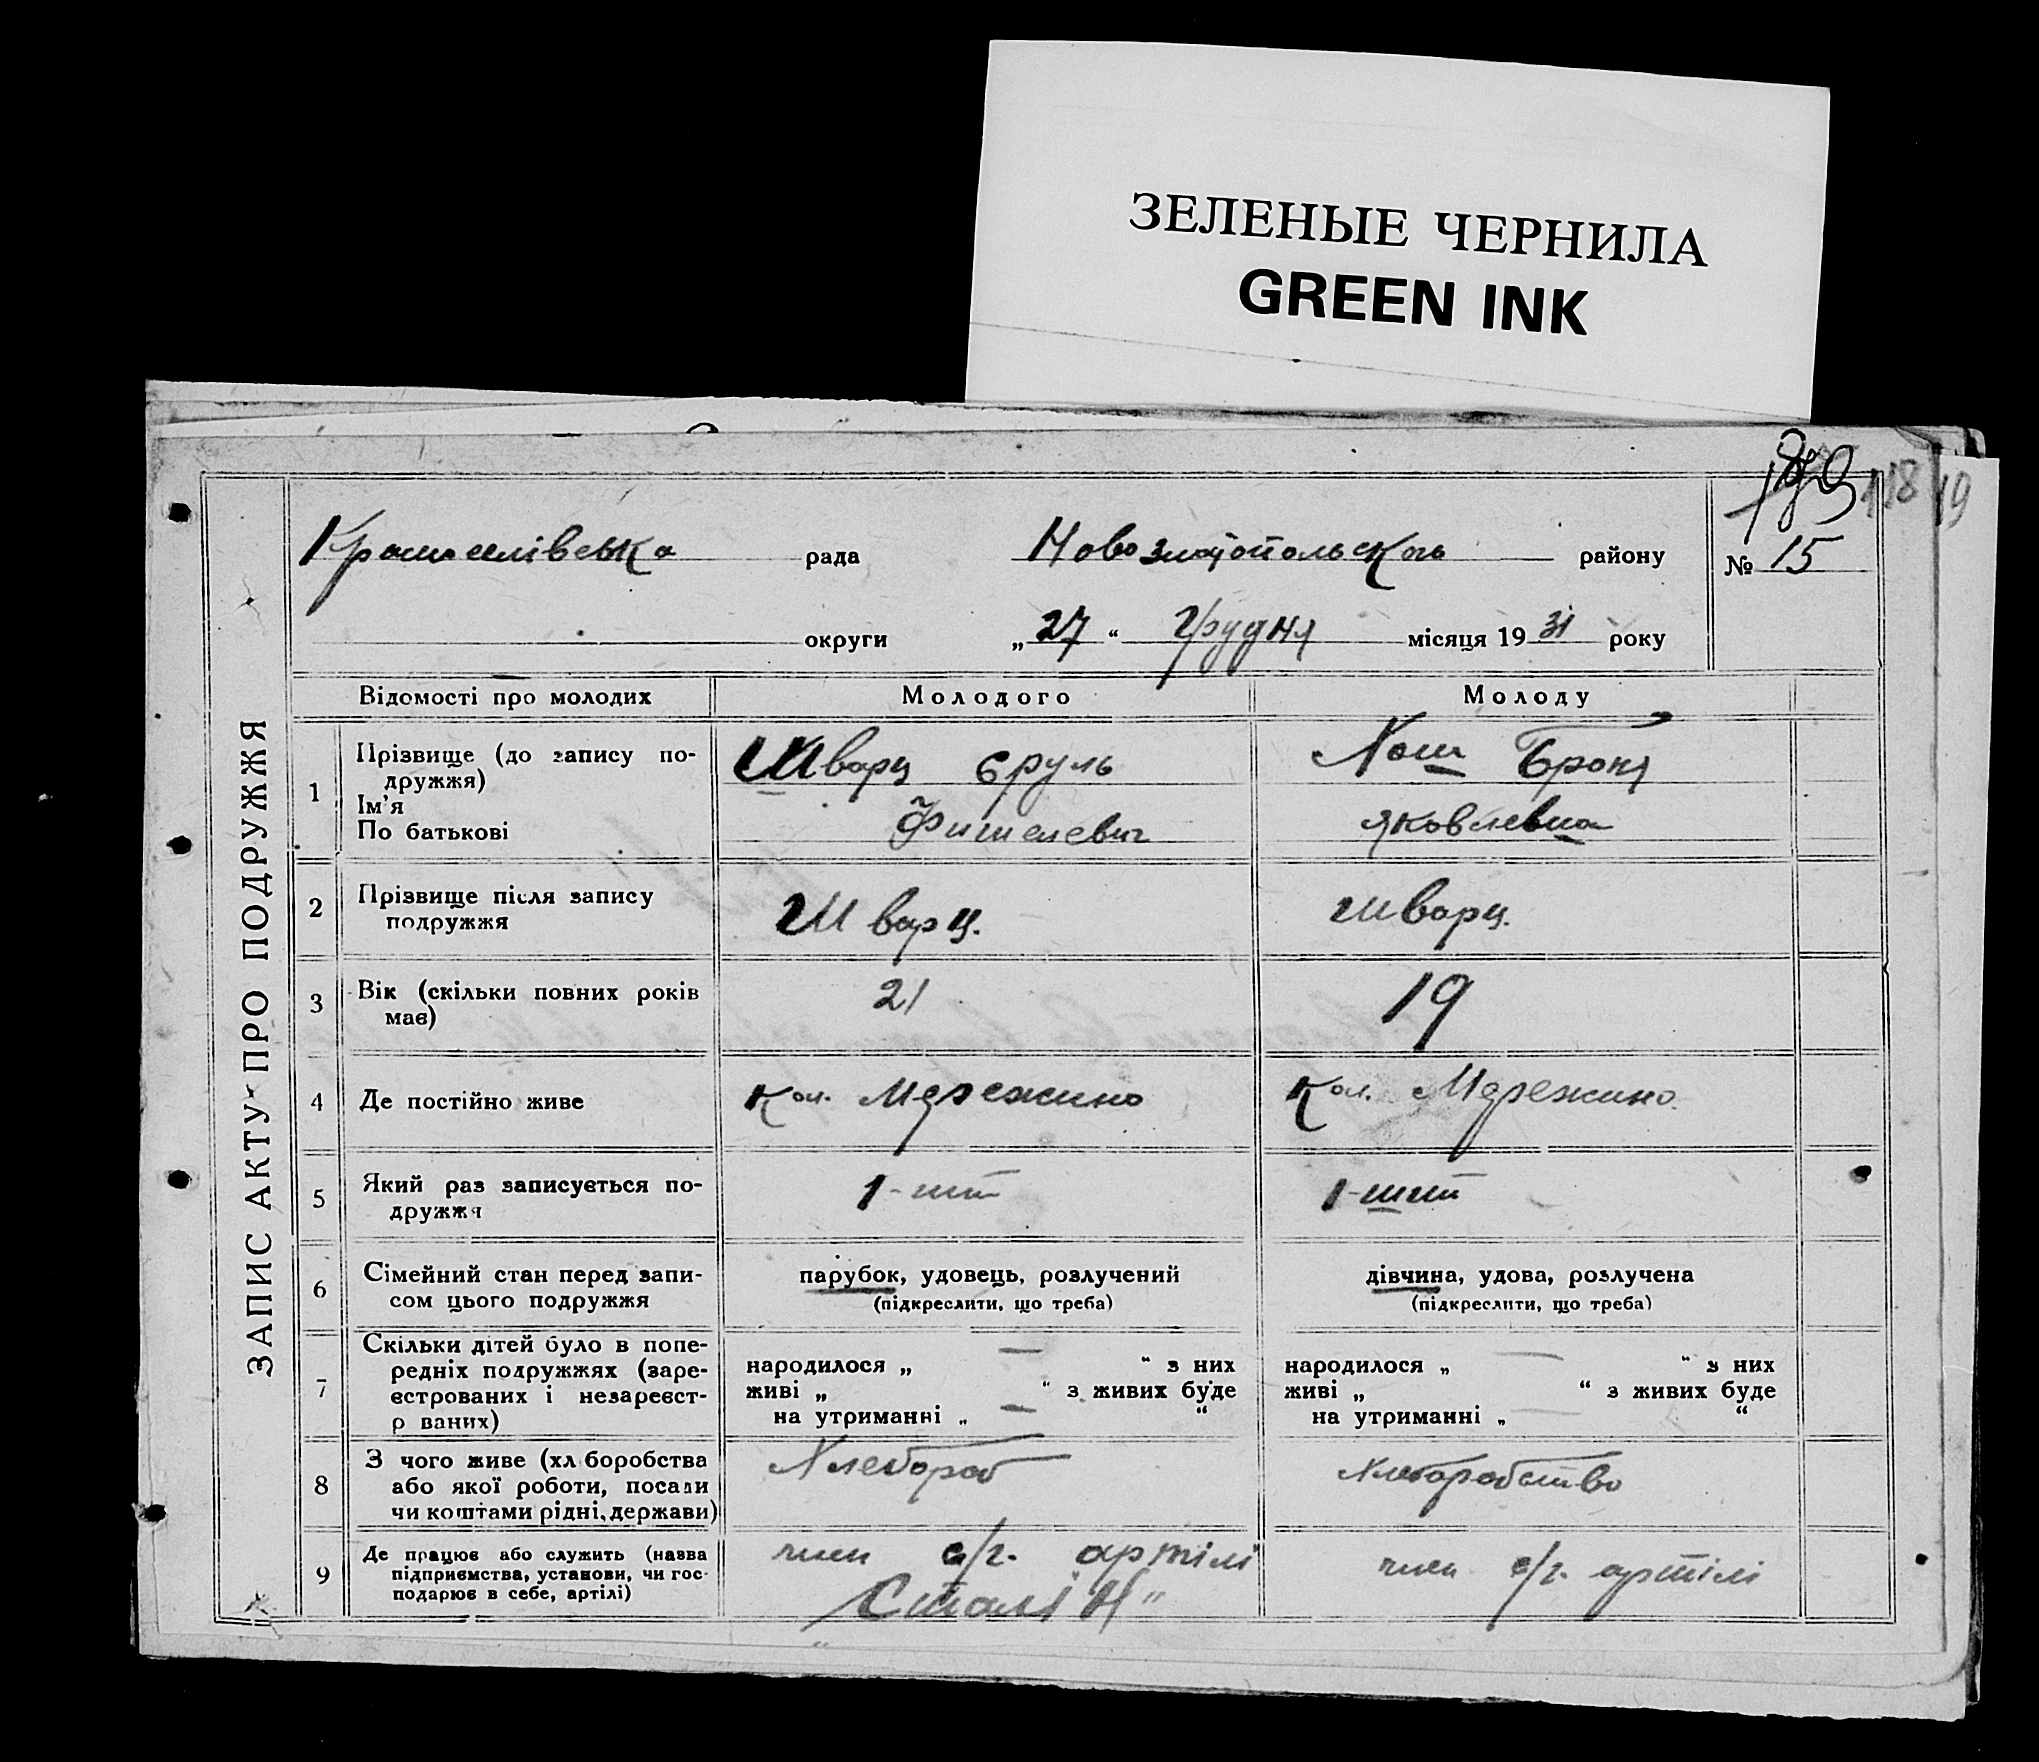 ЗЕЛЕНЫЕ ЧЕРНИЛА
GREEN INK
118 19
ЗАПИС АКТУ ПРО ПОДРУЖЖЯ
рада Новозлатопольског району № 15
округи „27“ Грудня місяця 1931 року
Відомості про молодих Молодого Молоду
1 Прізвище (до запису по- Шварц Сруль Хаш Броня
дружжя)
Ім'я
По батькові Фишелевич Яковлевна
2 Прізвище після запису Шварц. Шварц.
подружжя
3 Вік (скільки повних років 21 19
має)
4 Де постійно живе Кол. Мережино Кол. Мережино.
5 Який раз записується по- 1-ший 1-ший
дружжя
6 Сімейний стан перед запи- парубок, удовець, розлучений дівчина, удова, розлучена
сом цього подружжя (підкреслити, що треба) (підкреслити, що треба)
7 Скільки дітей було в попе-
редніх подружжях (заре- народилося „ — “ з них народилося „ — “ з них
єстрованих і незареєст- живі „ “ з живих буде живі „ “ з живих буде
р ваних) на утриманні „ — “ на утриманні „ — “
8 З чого живе (хл боробства Хлебороб Хлеборобство
або якої роботи, посади
чи коштами рідні, держави)
9 Де працює або служить (назва член с/г. артілі член с/г. артілі
підприємства, установи, чи гос- „Сталін“
подарює в себе, артілі)